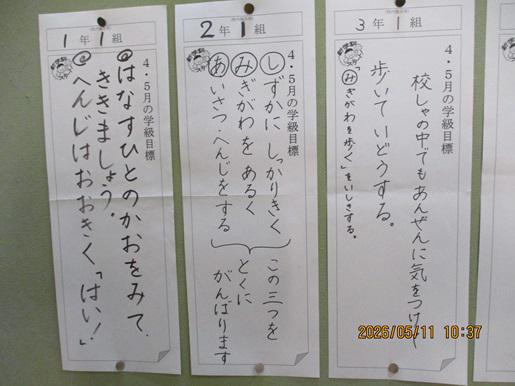 1年1組
4・5月の学級目標
はなすひとのかおをみて、
ききましょう。
へんじはおおきく「はい!」
2年1組
4・5月の学級目標
しずかに しっかりきく
みぎがわを あるく
あいさつ・へんじをする
この三つを
とくに
がんばります
3年1組
4・5月の学級目標
校しゃの中でもあんぜんに気をつけて
歩いて いどうする。
「みぎがわを歩く」をいしきする。
2026/05/11 10:37